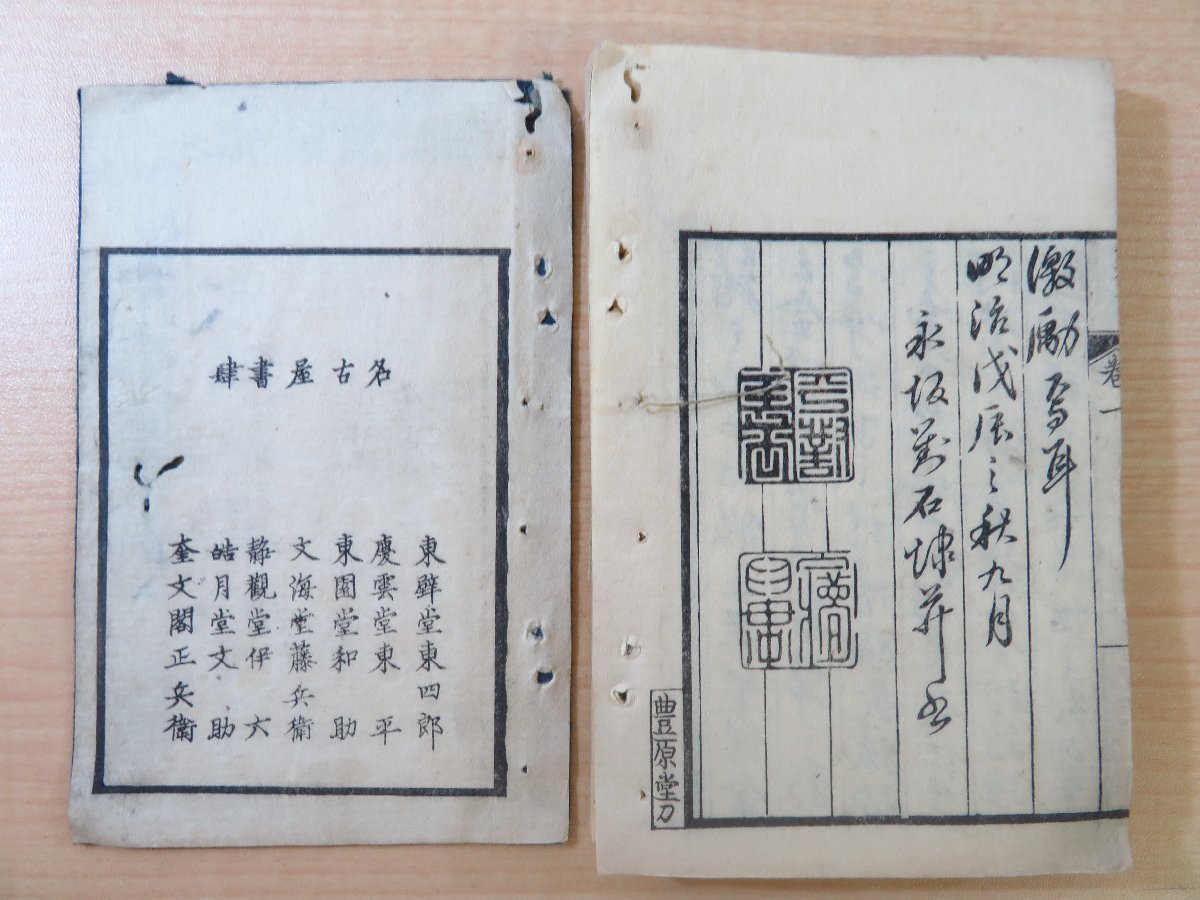 名古屋書肆
東壁堂東四郎
慶雲堂東平
東園堂和助
文海堂藤兵衛
静觀堂伊六
皓月堂文助
奎文閣正兵衛
激勵焉耳
明治戊辰之秋九月
永坂石埭并書
卷一
豊原堂刀